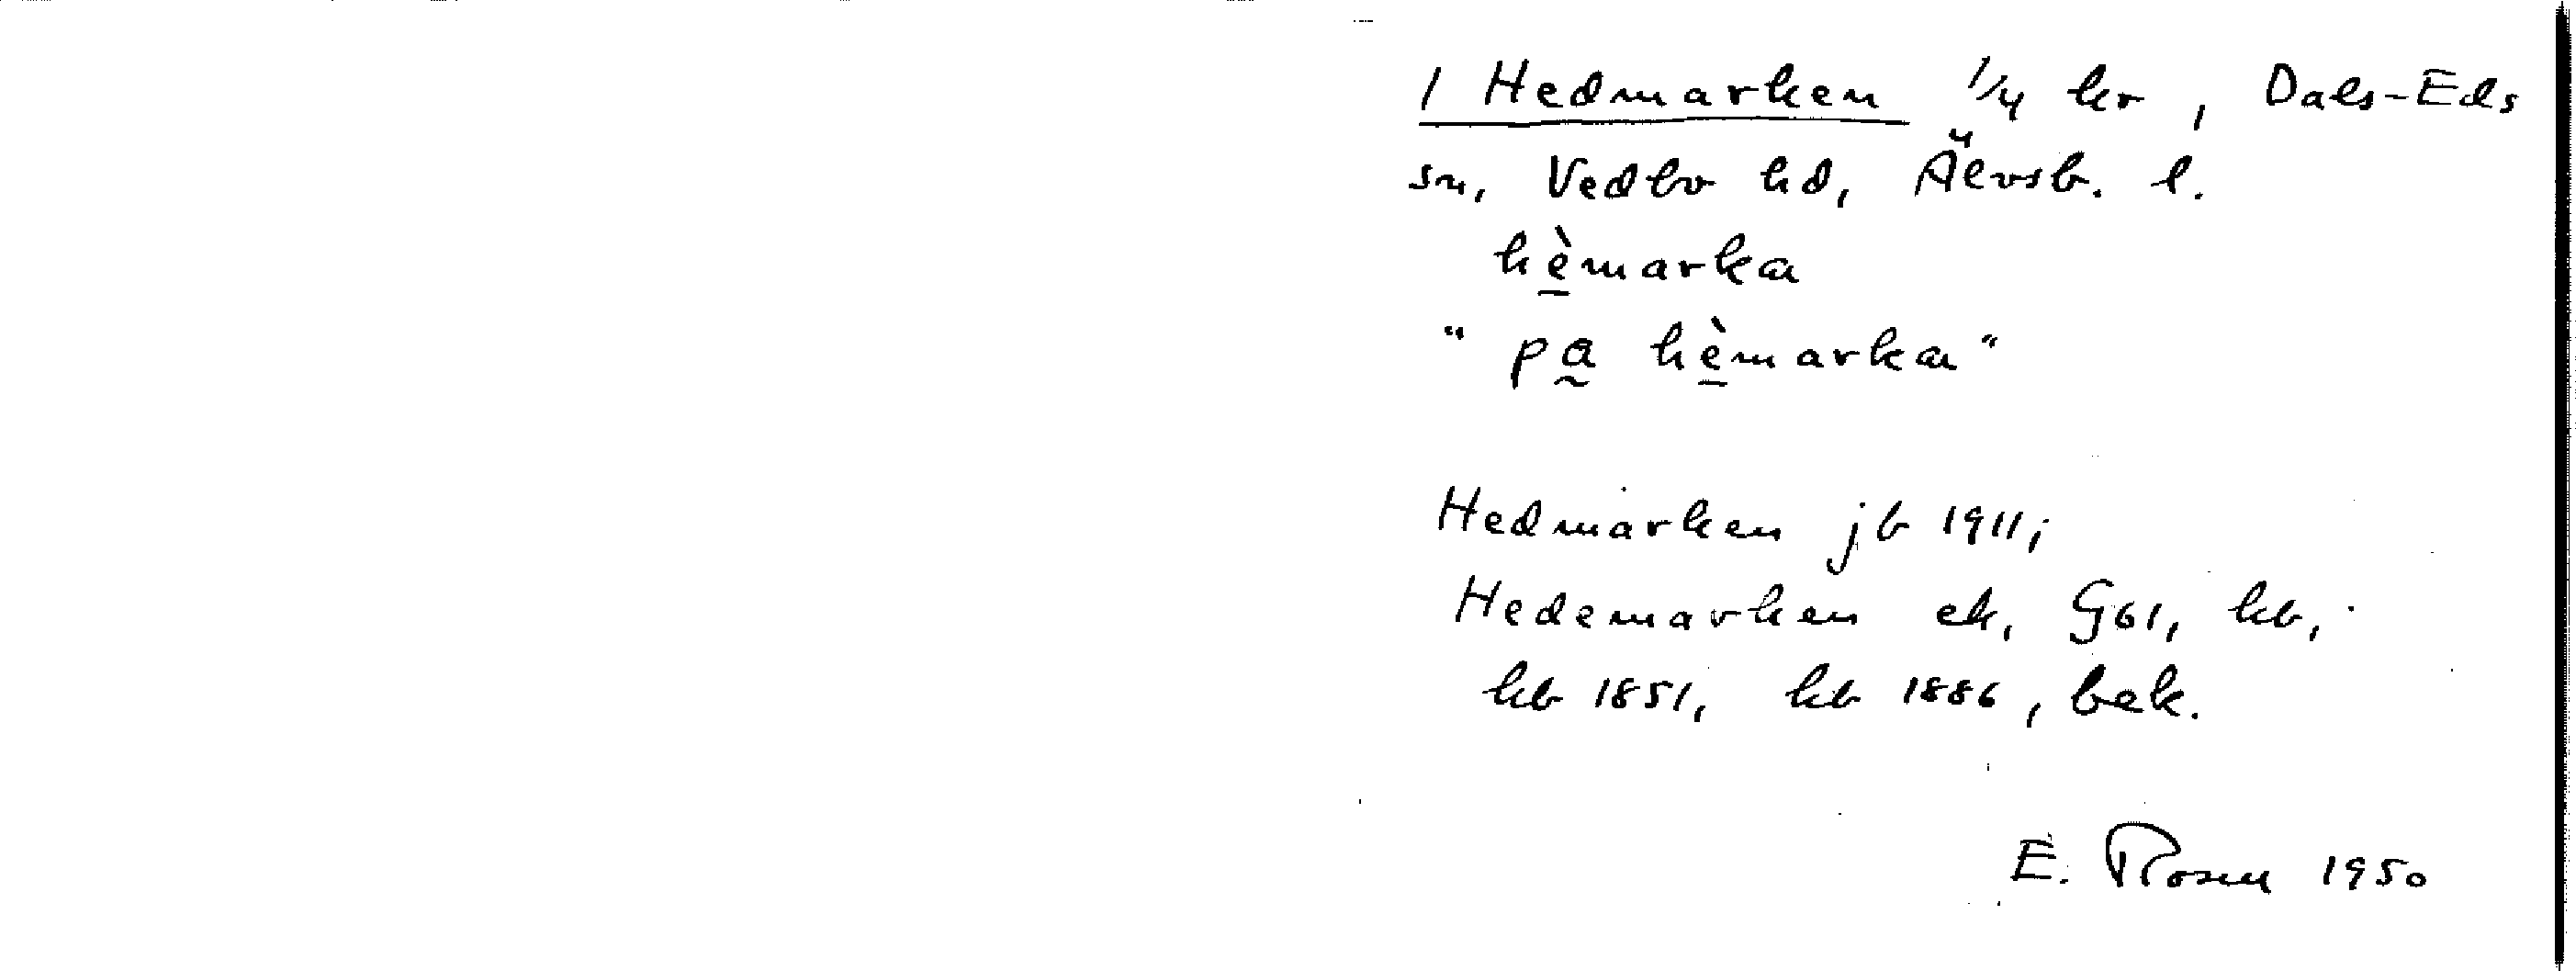 1 Hedmarken 1/4 kr, Dals-Eds
sn, Vedbo hd, Älvsb. l.
hèmarka
"på hèmarka"
Hedmarken jb 1911;
Hedemarken ek, G61, kb,
kb 1851, kb 1886, bek.
E. Rosen 1950